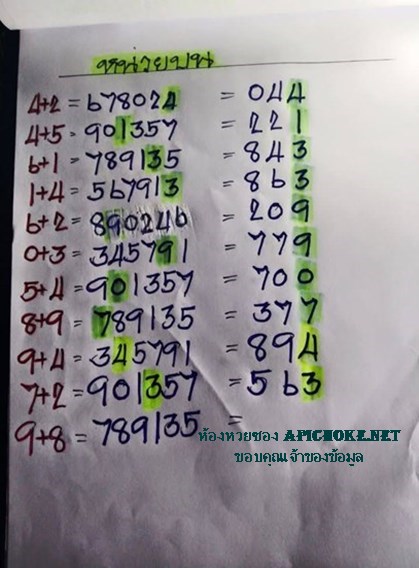 หน่วยบน
4+2 = 678024 = 044
4+5 = 901357 = 221
6+1 = 789135 = 843
1+4 = 567913 = 863
6+2 = 890246 = 209
0+3 = 345791 = 779
5+4 = 901357 = 700
8+9 = 789135 = 377
9+4 = 345791 = 894
7+2 = 901357 = 563
9+8 = 789135 =
ห้องหวยซอง APICHOKE.NET
ขอบคุณเจ้าของข้อมูล